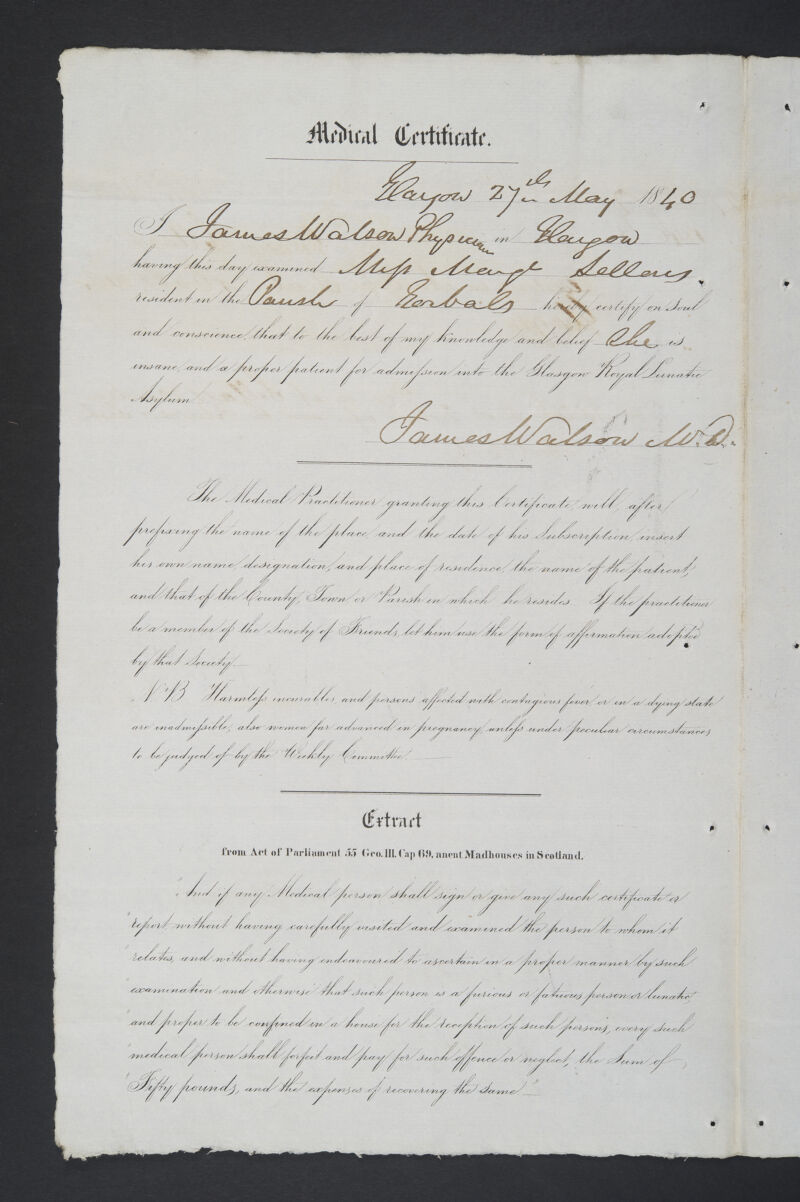 Medical Certificate.
Glasgow 27th May 1840
I James Watson Physician in Glasgow
having this day examined Miss Margt Sellars
resident in the Parish of Gorbals hereby certify on soul
and conscience, that to the best of my knowledge and belief She is
insane, and a proper patient for admission into the Glasgow Royal Lunatic
Asylum
James Watson M.D.
The Medical Practitioner granting this Certificate, will, after
prefixing the name of the place, and the date of his Subscription, insert
his own name, designation, and place of residence, the name of the patient,
and that of the County, Town or Parish in which he resides. If the practitioner
be a member of the Society of Friends, let him use the form of affirmation adopted
by that Society
N.B. Harmless incurables and persons affected with contagious fever or in a dying state
are inadmissible; also women far advanced in pregnancy unless under peculiar circumstances
to be judged of by the Weekly Committee
Extract
from Act of Parliament 55 Geo. III. Cap 69, anent Madhouses in Scotland.
"And if any Medical person shall sign or give any such certificate or
"report, without having carefully visited and examined the person to whom it
"relates, and without having endeavoured to ascertain in a proper manner by such
"examination and otherwise that such person is a furious or fatuous person or lunatic
"and proper to be confined in a house for the reception of such persons, every such
"medical person shall forfeit and pay for such offence or neglect, the Sum of
"Fifty pounds, and the expenses of recovering the same"